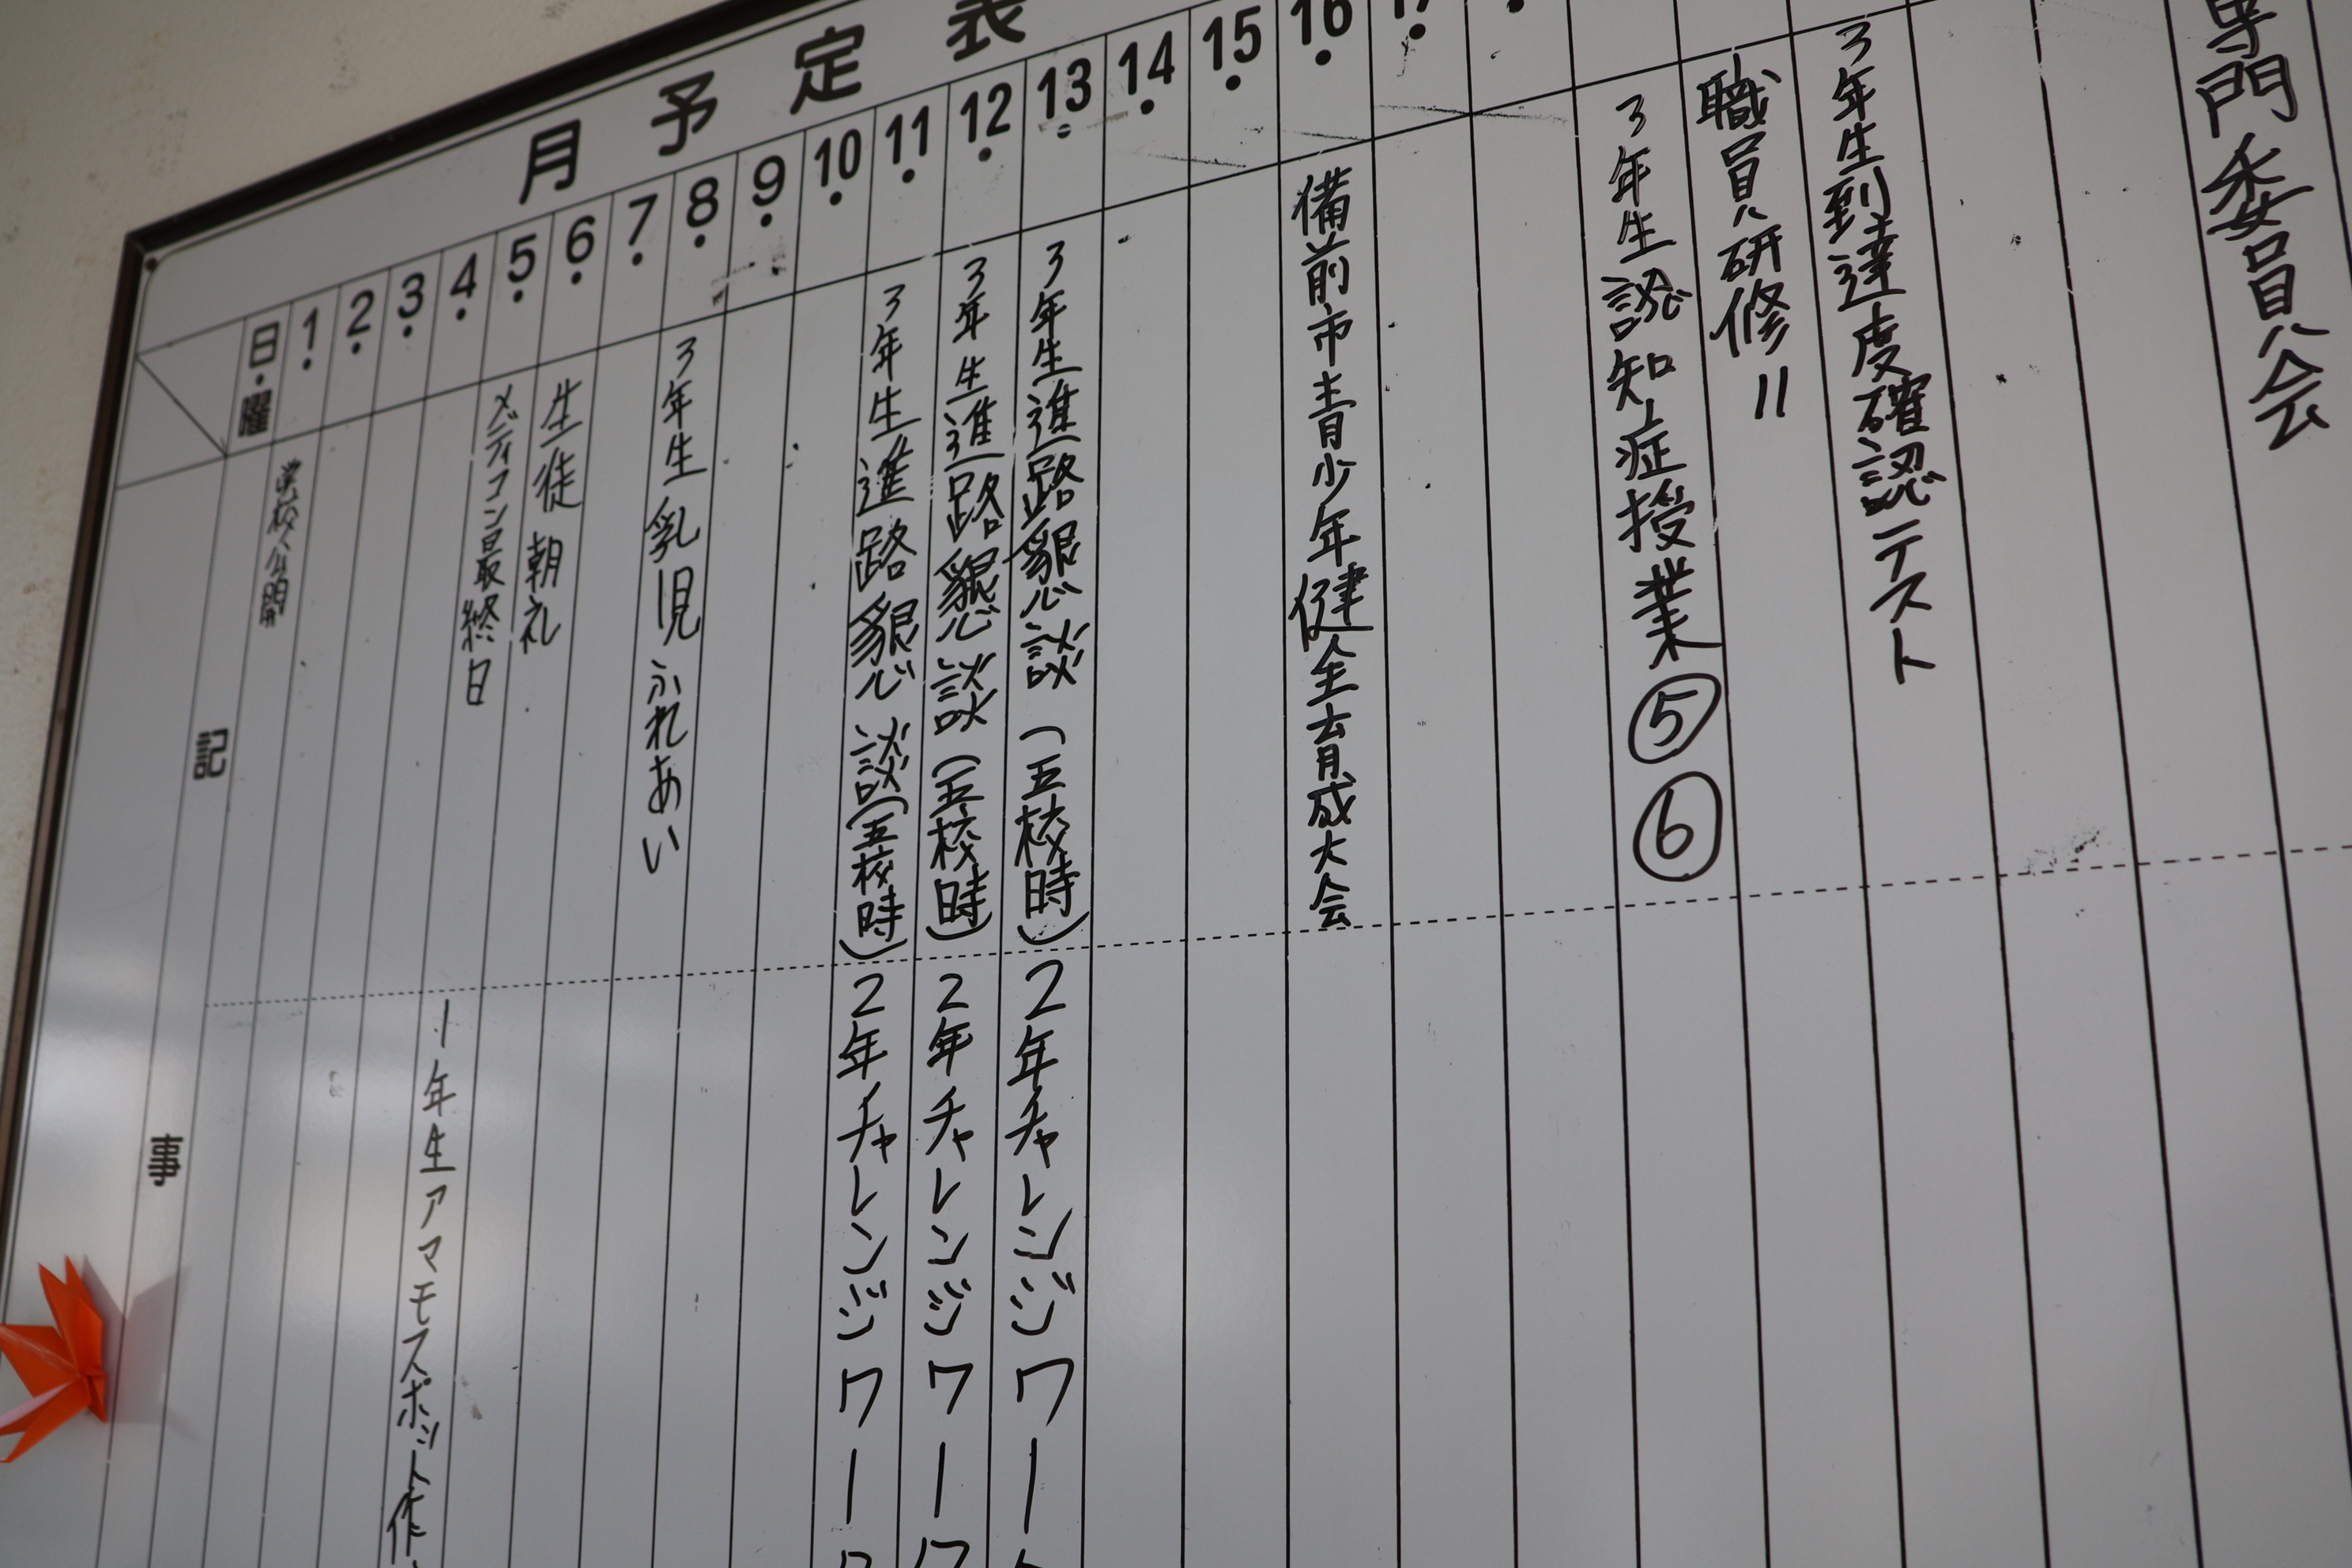 月予定表
日・曜
記事
1・
2・
3・
4・
5・
6・
7・
8・
9・
10・
11・
12・
13・
14・
15・
16・
学校公開
1年生アマモスポット作
メディコン最終日
生徒朝礼
3年生乳児ふれあい
3年生進路懇談(五校時)
2年チャレンジワーク
3年生進路懇談(五校時)
2年チャレンジワーク
3年生進路懇談(五校時)
2年チャレンジワー
備前市青少年健全育成大会
3年生認知症授業⑤⑥
職員研修〃
3年生到達度確認テスト
専門委員会